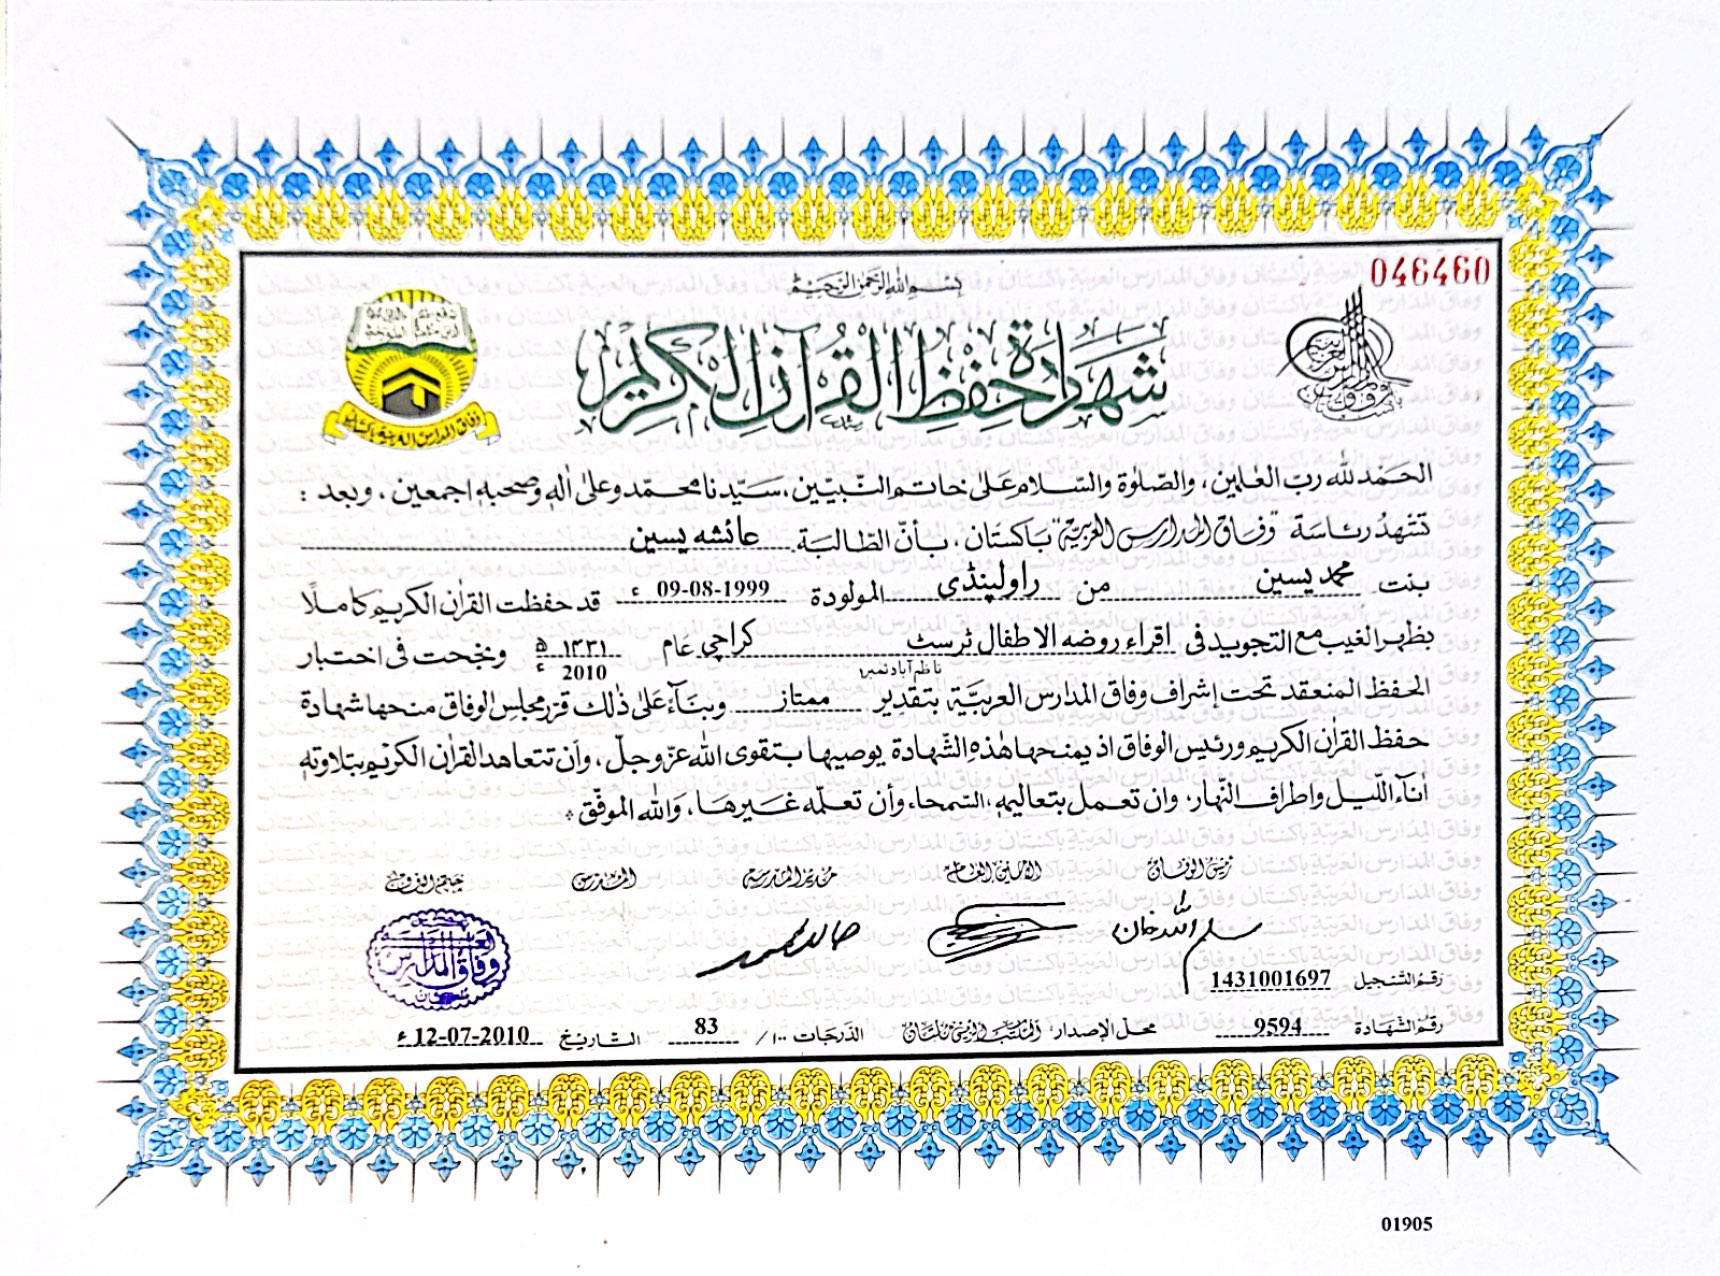 بسم الله الرحمن الرحيم
046460
شهادة حفظ القرآن الكريم
وفاق المدارس العربية باكستان
الحمد لله رب العٰلمين، والصلوٰة والسّلام علىٰ خاتم النّبيّين، سيّدنا محمّد وعلىٰ اٰلهٖ وصحبهٖ اجمعين، وبعد :
تشهدُ رئاسة "وفاق المدارس العربية" باكستان، بأنّ الطّالبة عائشه يسين
بنت محمد يسين من راولپنڈی المولودة 09-08-1999 ء قد حفظت القراٰن الكريم كاملاً
بظهر الغيب مع التجويد فى اقراء روضه الاطفال ٹرسٹ كراچى عَام ١٤٣١ ھ ونجحت فى اختبار
ناظم آباد نمبر 2010 ء
الحفظ المنعقد تحت إشراف وفاق المدارس العربيّة بتقدير ممتاز وبنآءً علىٰ ذٰلك قرّر مجلس الوفاق منحها شهادة
حفظ القراٰن الكريم ورئيس الوفاق اذ يمنحها هٰذه الشّهادة يوصيها بتقوى الله عزّوجلّ، وأن تتعاهد القراٰن الكريم بتلاوتهٖ
اٰنآء اللّيل واطراف النّهار، وان تعمل بتعاليمهٖ السّمحاء، وأن تعلّمه غيرها، والله الموفّق
رئيس الوفاق الامين العام مدير المدرسة المدرس ختم الوفاق
سليم الله خان
وفاق المدارس العربية
رقم التسجيل 1431001697
رقم الشهادة 9594 محل الإصدار: المكتب الرئيسى ملتان الدرجات ١٠٠/ 83 التاريخ 12-07-2010 ء
01905